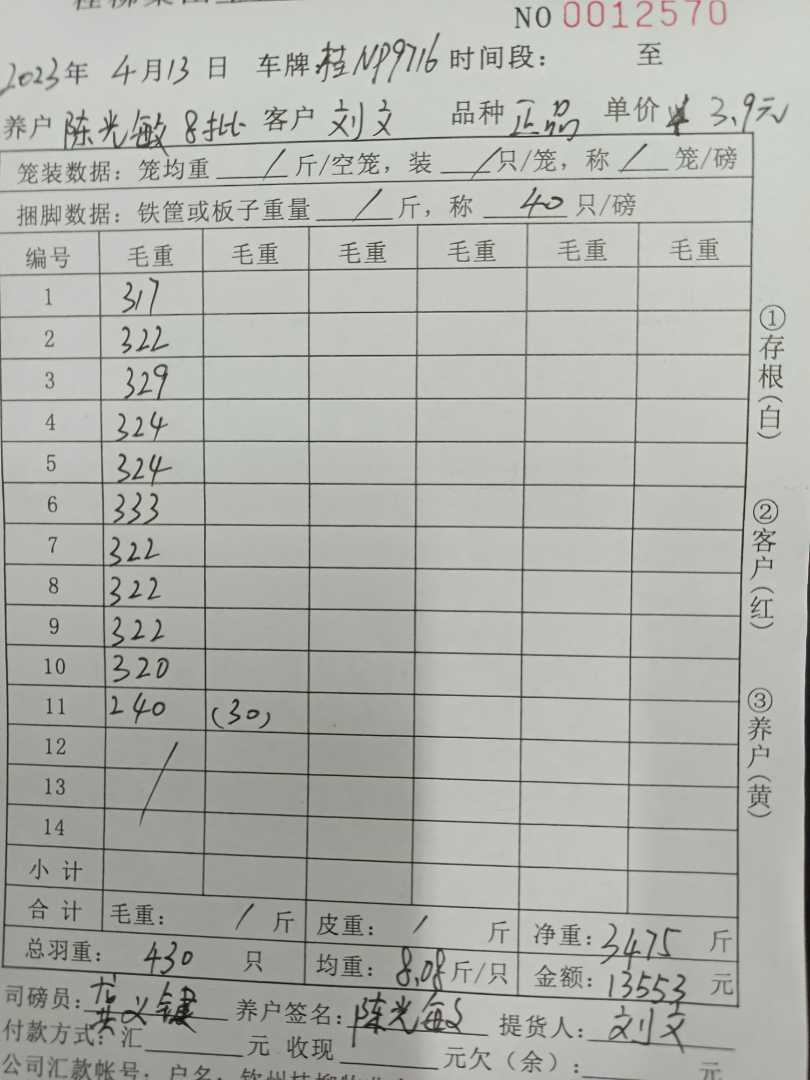 NO 0012570
2023年 4月13日 车牌:桂NP9716 时间段: 至
养户 陈光敏 8批 客户 刘文 品种 正品 单价 3.9元
笼装数据:笼均重 / 斤/空笼,装 / 只/笼,称 / 笼/磅
捆脚数据:铁筐或板子重量 / 斤,称 40 只/磅
编号 毛重 毛重 毛重 毛重 毛重 毛重
1 317
2 322
3 329
4 324
5 324
6 333
7 322
8 322
9 322
10 320
11 240 (30)
12 /
13
14
小计
合计 毛重: / 斤 皮重: / 斤 净重:3475 斤
总羽重: 430 只 均重:8.08斤/只 金额:13553 元
司磅员: 养户签名:陈光敏 提货人:刘文
付款方式:汇 元 收现 元欠(余): 元
公司汇款帐号:户名:钦州桂柳牧业
①存根(白)
②客户(红)
③养户(黄)